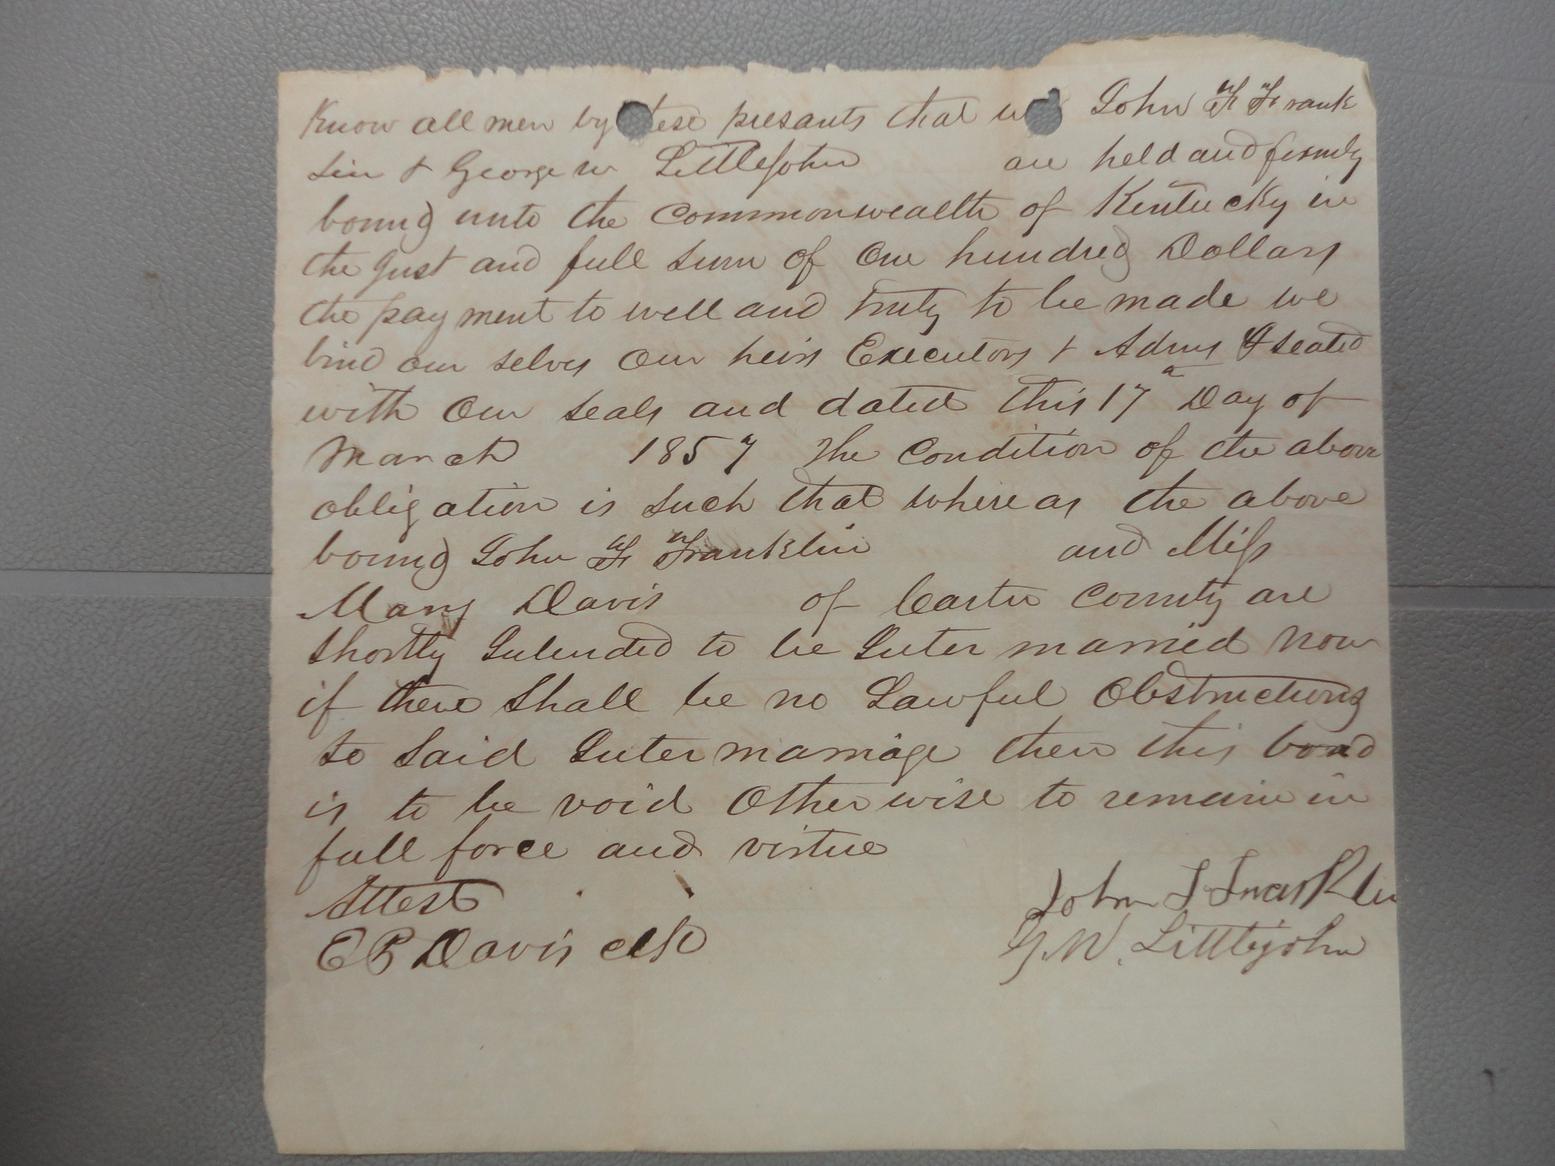 Know all men by these presants that we John F Frank
lin & George W Littlejohn are held and firmly
bound unto the Commonwealth of Kentucky in
the Just and full sum of One hundred Dollars
the payment to well and truly to be made we
bind our selves Our heirs Executors & Admrs & sealed
with Our seals and dated this 17th Day of
March 1857 The Condition of the above
obligation is such that where as the above
bound John F Franklin and Miss
Mary Davis of Carter County are
shortly Intended to be Inter married Now
if there shall be no Lawful Obstructions
to said Inter marriage then this bond
is to be void Other wise to remain in
full force and virtue
Attest
John F Franklin
E B Davis clk
G. W. Littlejohn